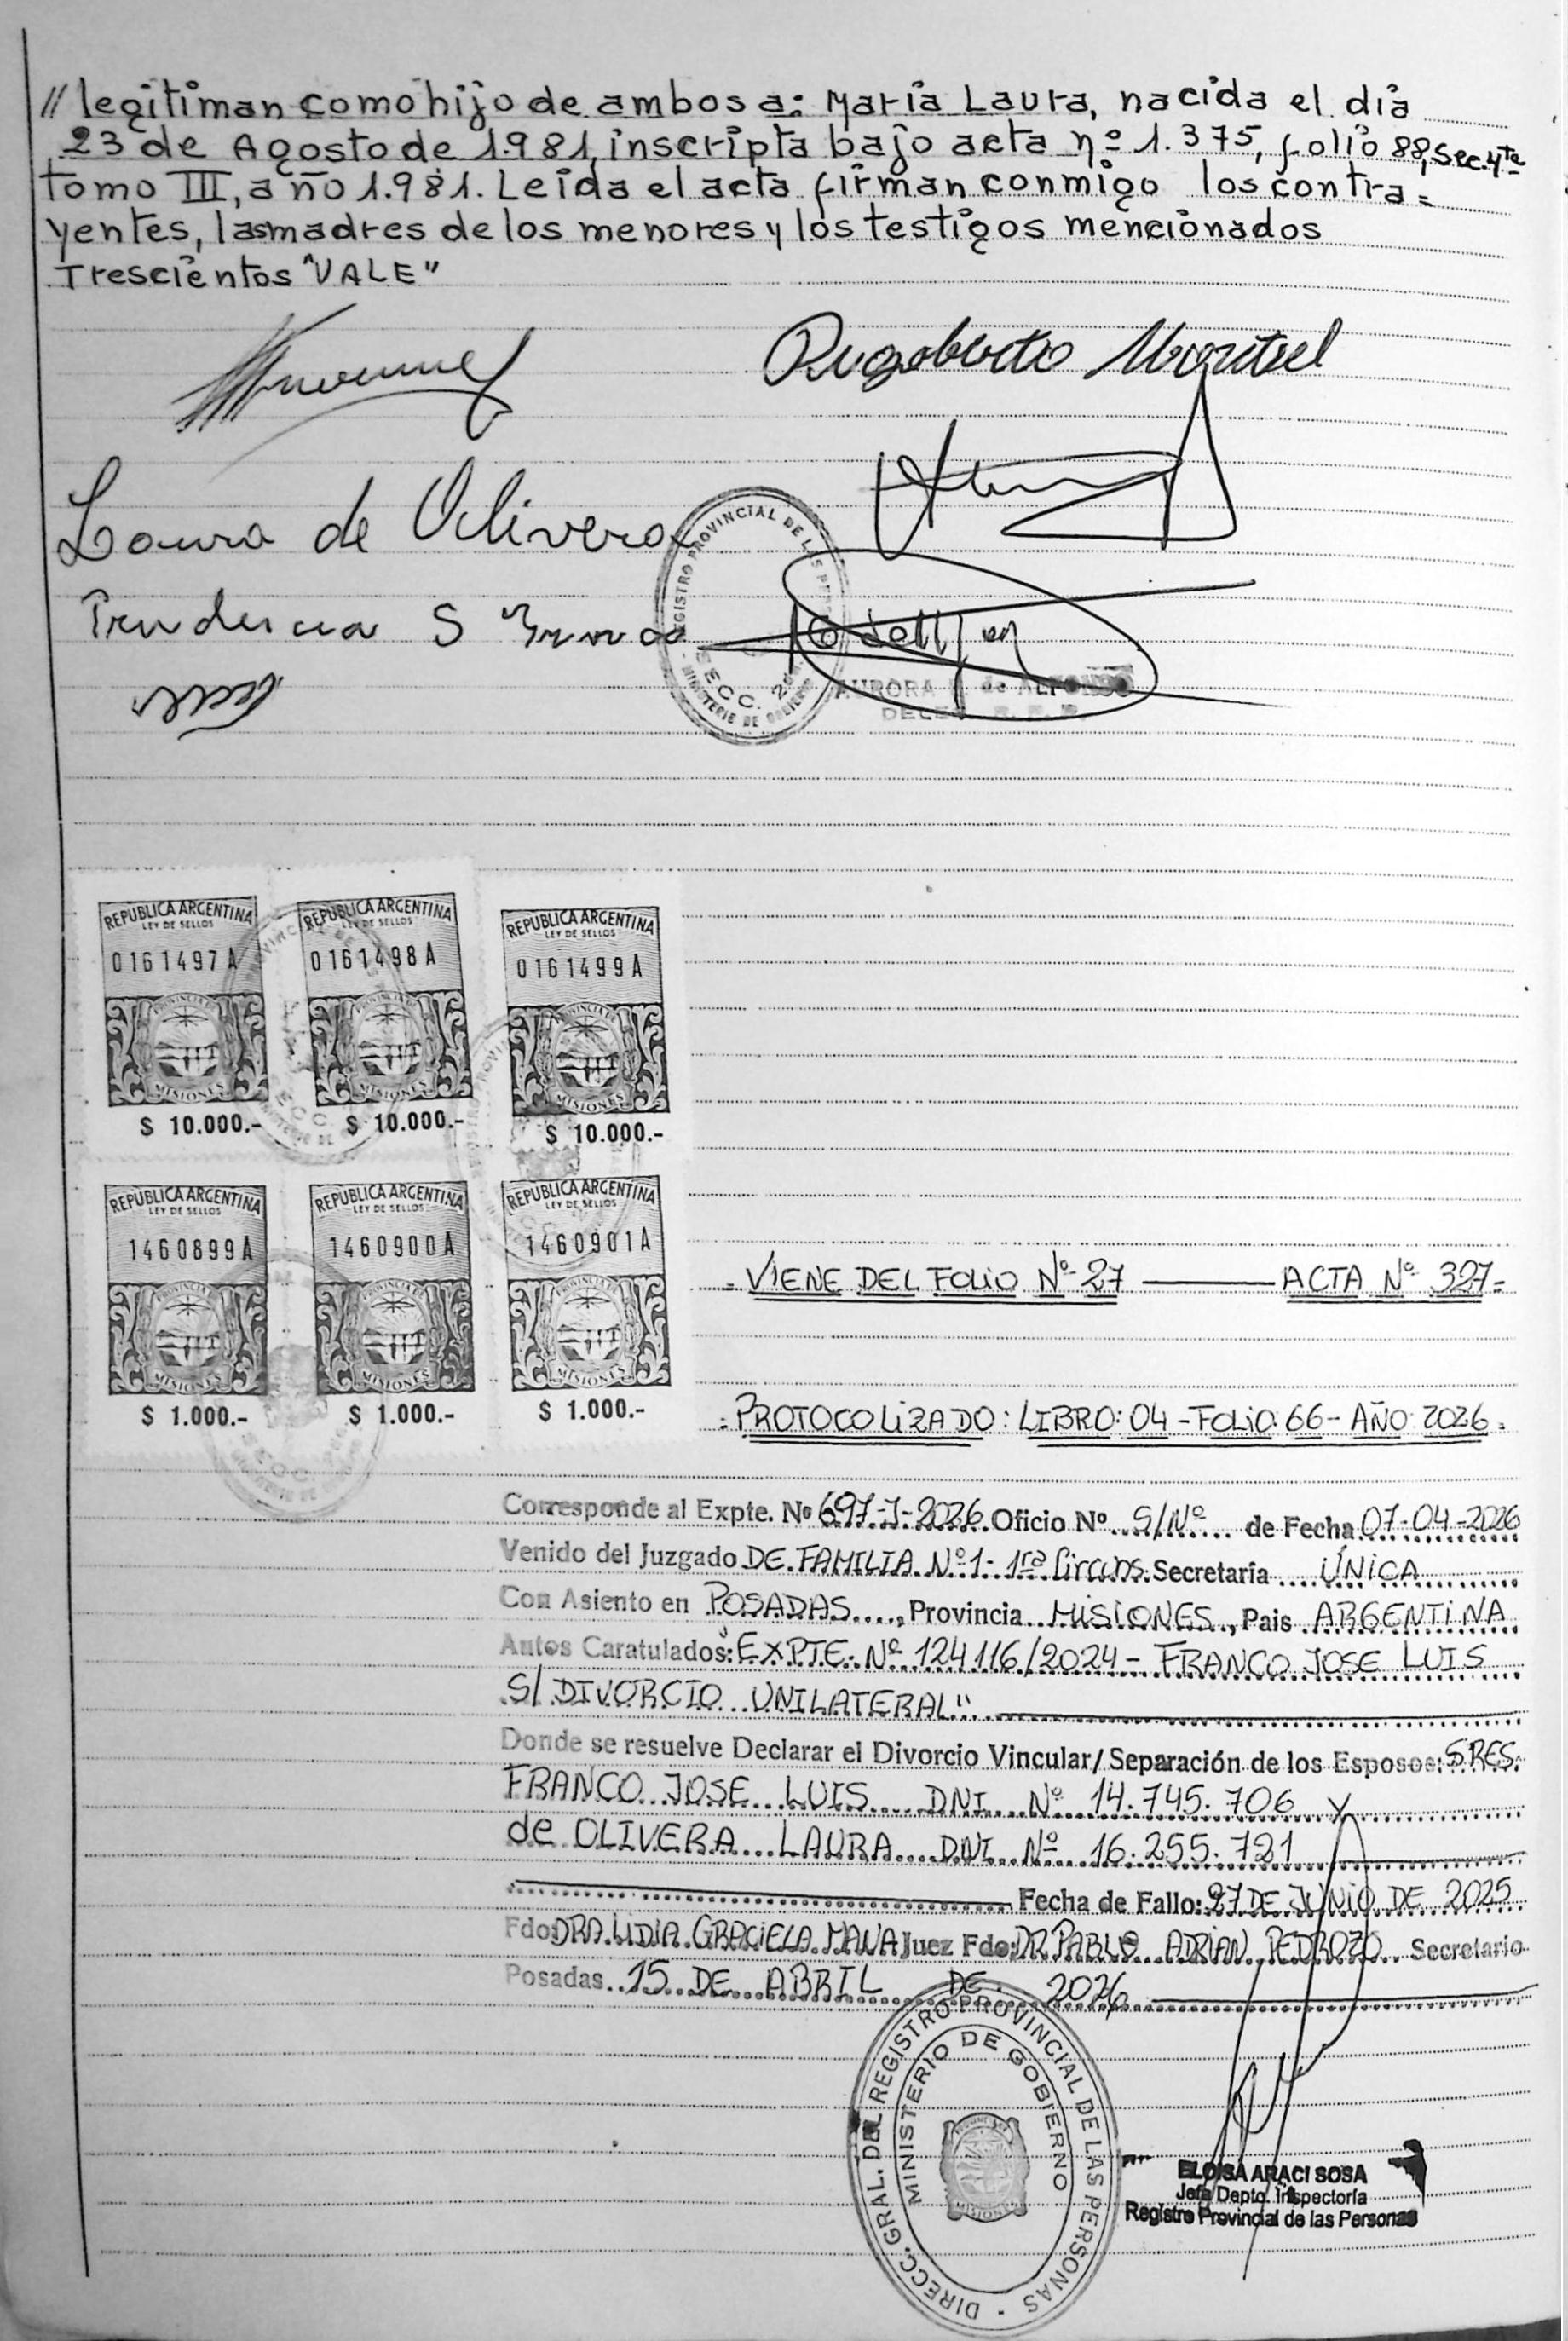 // legitiman como hijo de ambos a: María Laura, nacida el día
23 de Agosto de 1.981, inscripta bajo acta nº 1.375, folio 88, Sec. 4ta
tomo III, año 1.981. Leída el acta firman conmigo los contra=
yentes, las madres de los menores y los testigos mencionados
Trescientos "VALE"
Rugoberto Montiel
Laura de Olivera
REGISTRO PROVINCIAL DE LAS PER
SECC. 2
MINISTERIO DE GOBIERNO
Prudencia S
AURORA de ALFONSO
REPUBLICA ARGENTINA
LEY DE SELLOS
0161497A
PROVINCIA DE
MISIONES
$ 10.000.-
REPUBLICA ARGENTINA
LEY DE SELLOS
0161498A
PROVINCIA DE
MISIONES
$ 10.000.-
REPUBLICA ARGENTINA
LEY DE SELLOS
0161499A
PROVINCIA DE
MISIONES
$ 10.000.-
REPUBLICA ARGENTINA
LEY DE SELLOS
1460899A
PROVINCIA DE
MISIONES
$ 1.000.-
REPUBLICA ARGENTINA
LEY DE SELLOS
1460900A
PROVINCIA DE
MISIONES
$ 1.000.-
REPUBLICA ARGENTINA
LEY DE SELLOS
1460901A
PROVINCIA DE
MISIONES
$ 1.000.-
= VIENE DEL FOLIO Nº 27 ——— ACTA Nº 327=
= PROTOCOLIZADO: LIBRO: 04 - FOLIO: 66 - AÑO: 2026 =
Corresponde al Expte. Nº 697-J-2026 Oficio Nº S/Nº de Fecha 07-04-2026
Venido del Juzgado DE FAMILIA Nº 1- 1ra Circuns. Secretaría ÚNICA
Con Asiento en POSADAS, Provincia MISIONES, Pais ARGENTINA
Autos Caratulados: EXPTE. Nº 124116/2024 - FRANCO JOSE LUIS
S/ DIVORCIO UNILATERAL"
Donde se resuelve Declarar el Divorcio Vincular/ Separación de los Esposos: SRES.
FRANCO JOSE LUIS DNI Nº 14.745.706 y
de OLIVERA LAURA DNI Nº 16.255.721
Fecha de Fallo: 27 DE JUNIO DE 2025
Fdo DRA. LIDIA GRACIELA MANA Juez Fdo: DR PABLO ADRIAN PEDROZO Secretario
Posadas 15 DE ABRIL DE 2026
DIRECC. GRAL. DEL REGISTRO PROVINCIAL DE LAS PERSONAS
MINISTERIO DE GOBIERNO
MISIONES
ELOISA ARACI SOSA
Jefa Depto. Inspectoría
Registro Provincial de las Personas